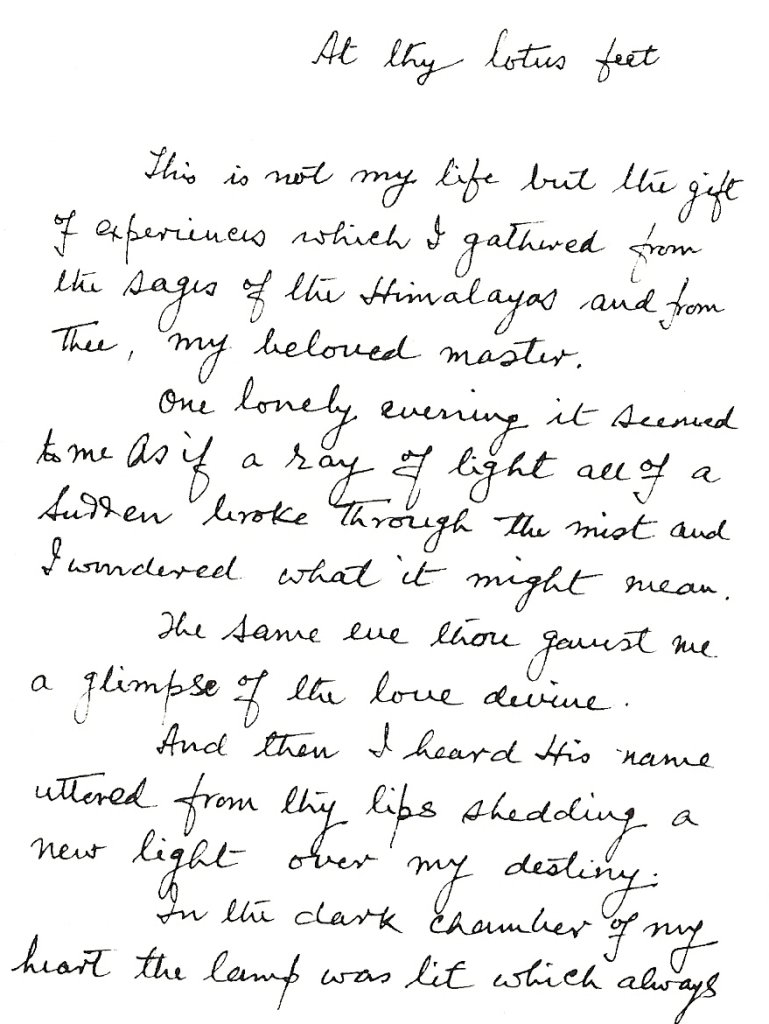 At thy lotus feet
This is not my life but the gift
of experiences which I gathered from
the sages of the Himalayas and from
Thee, my beloved master.
One lonely evening it seemed
to me As if a ray of light all of a
Sudden broke through the mist and
I wondered what it might mean.
The same eve thou gavest me
a glimpse of the love devine.
And then I heard His name
uttered from thy lips shedding a
new light over my destiny.
In the dark chamber of my
heart the lamp was lit which always